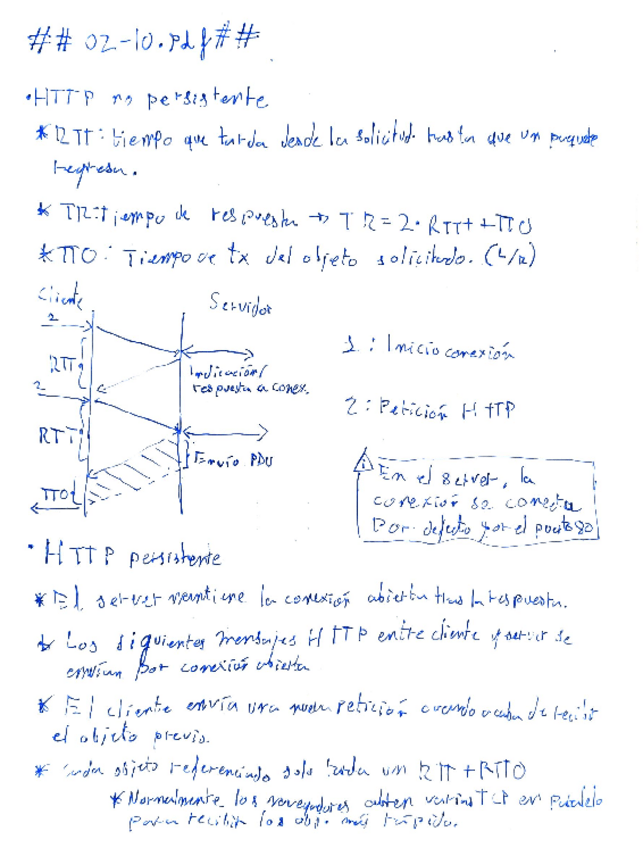 ## 02-10.pdf##
•HTTP no persistente
* RTT: tiempo que tarda desde la solicitud hasta que un paquete
regresa.
* TR: tiempo de respuesta → TR = 2 · RTT + TTO
* TTO: Tiempo de tx del objeto solicitado. (L/R)
Cliente Servidor
2
RTT
Indicación/
respuesta a conex.
2
RTT
Envío PDU
TTO
1: Inicio conexión
2: Petición HTTP
En el server, la
conexión se conecta
por defecto por el puerto 80
• HTTP persistente
* El server mantiene la conexión abierta tras la respuesta.
* Los siguientes mensajes HTTP entre cliente y server se
envían por conexión abierta
* El cliente envía una nueva petición cuando acaba de recibir
el objeto previo.
* cada objeto referenciado solo tarda un RTT + RTTO
* Normalmente los navegadores abren varias TCP en paralelo
para recibir los obj. más rápido.